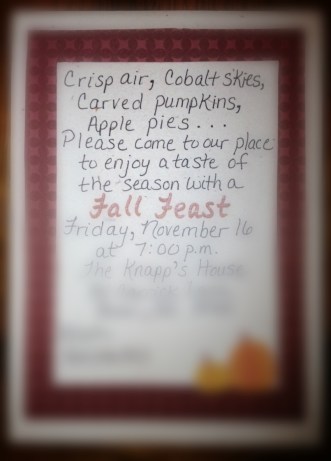 Crisp air, Cobalt skies,
Carved pumpkins,
Apple pies...
Please come to our place
to enjoy a taste of
the season with a
Fall Feast
Friday, November 16
at 7:00 p.m.
The Knapp's House